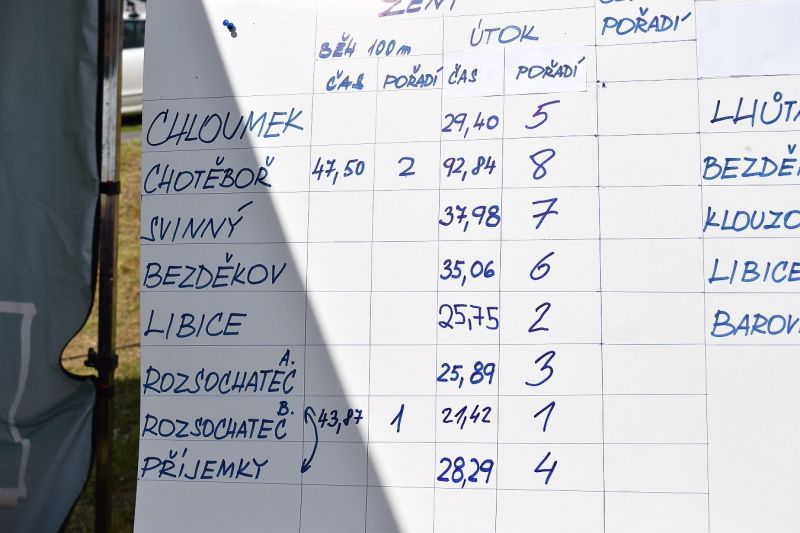 ŽENY
BĚH 100m ÚTOK
POŘADÍ
ČAS POŘADÍ ČAS POŘADÍ
CHLOUMEK 29,40 5
CHOTĚBOŘ 47,50 2 92,84 8
SVINNÝ 37,98 7
BEZDĚKOV 35,06 6
LIBICE 25,75 2
ROZSOCHATEC A. 25,89 3
ROZSOCHATEC B. 43,87 1 21,42 1
PŘÍJEMKY 28,29 4
LHŮTA
BEZDĚ
KLOUZO
LIBICE
BAROV